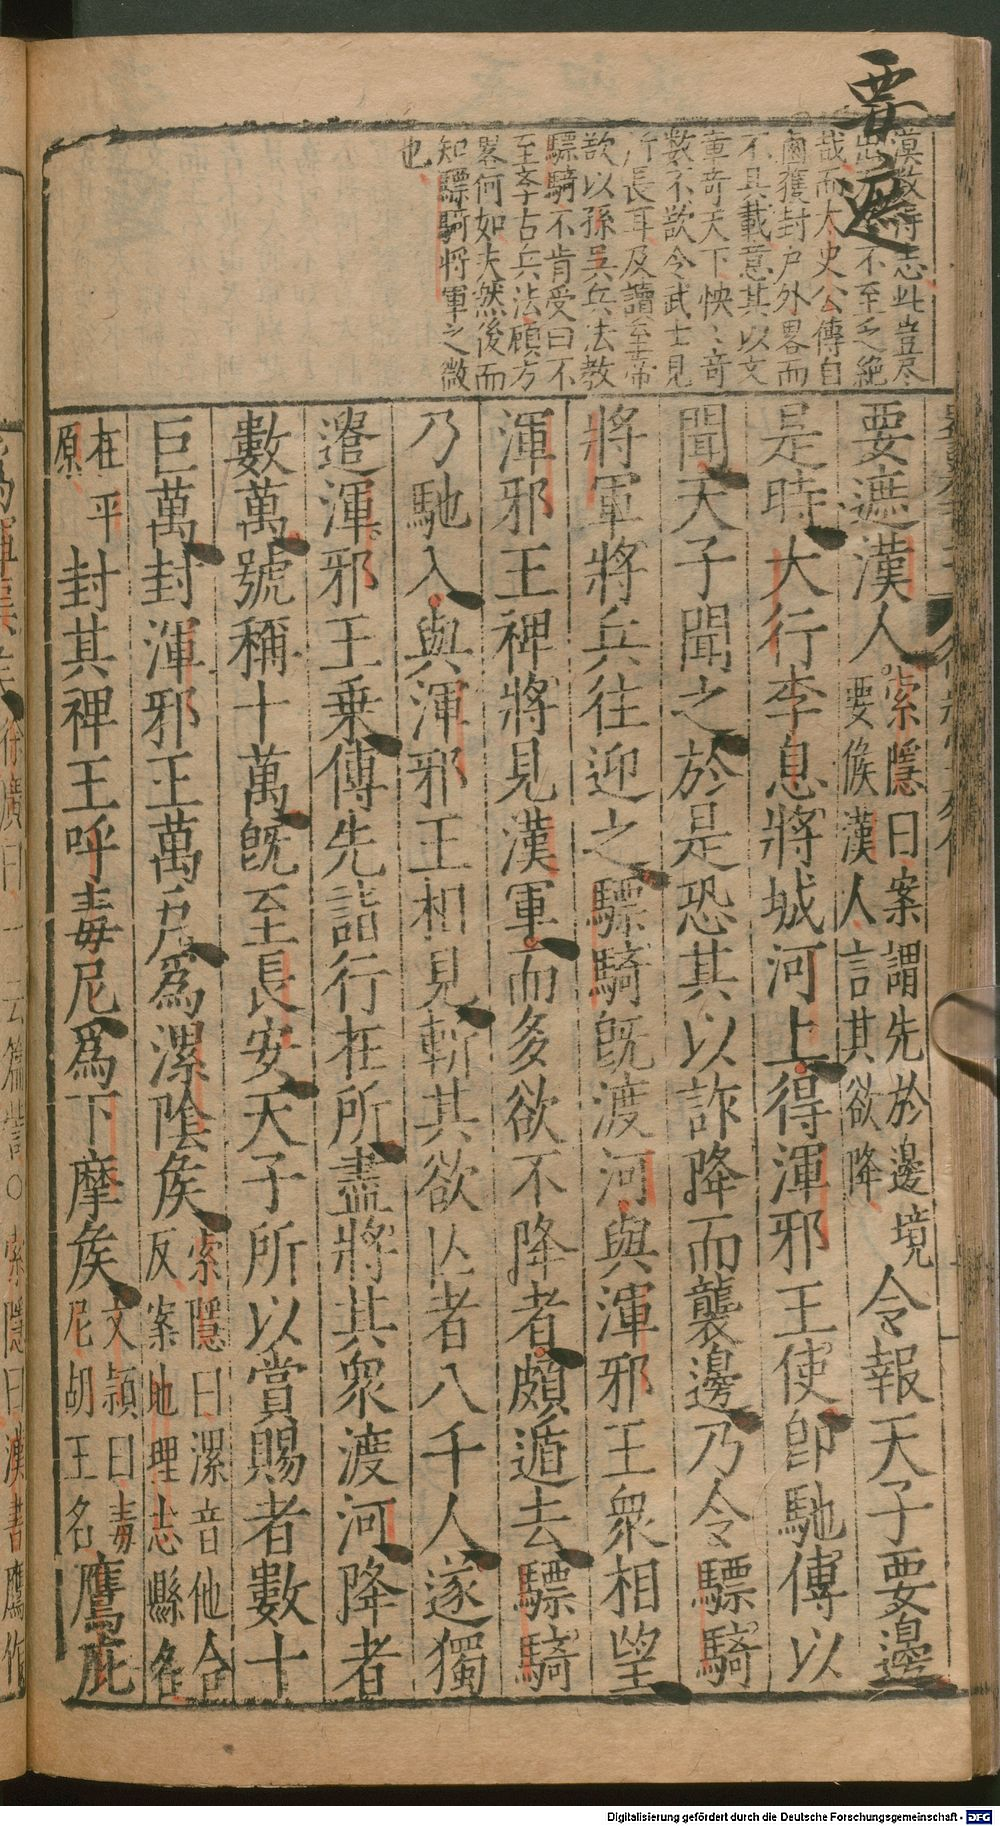 要遮
漠
志此豈尽
不至乏絶
哉而太史公傳自
鹵獲封户外畧而
不具載意其以文
章奇天下怏〻奇
數不欲令武士見
所長耳及讀至帝
欲以孫吳兵法教
驃騎不肯受曰不
至李古兵法顧方
畧何如夫然後而
知驃騎將軍之微
也
要遮漢人
索隱曰案謂先於邊境
要候漢人言其欲降
令報天子要邊
是時大行李息將城河上得渾邪王使即馳傳以
聞天子聞之於是恐其以詐降而襲邊乃令驃騎
將軍將兵往迎之驃騎既渡河與渾邪王衆相望
渾邪王裨將見漢軍而多欲不降者頗遁去驃騎
乃馳入與渾邪王相見斬其欲亾者八千人遂獨
遣渾邪王乗傳先詣行在所盡將其衆渡河降者
數萬號稱十萬既至長安天子所以賞賜者數十
巨萬封渾邪王萬户爲漯隂矦
索隱曰漯音他合
反案地理志縣名
在平
原
封其裨王呼毒尼爲下摩矦
文頴曰毒
尼胡王名
鷹庇
一云篇訾○索隱曰漢書鷹作
Digitalisierung gefördert durch die Deutsche Forschungsgemeinschaft - DFG